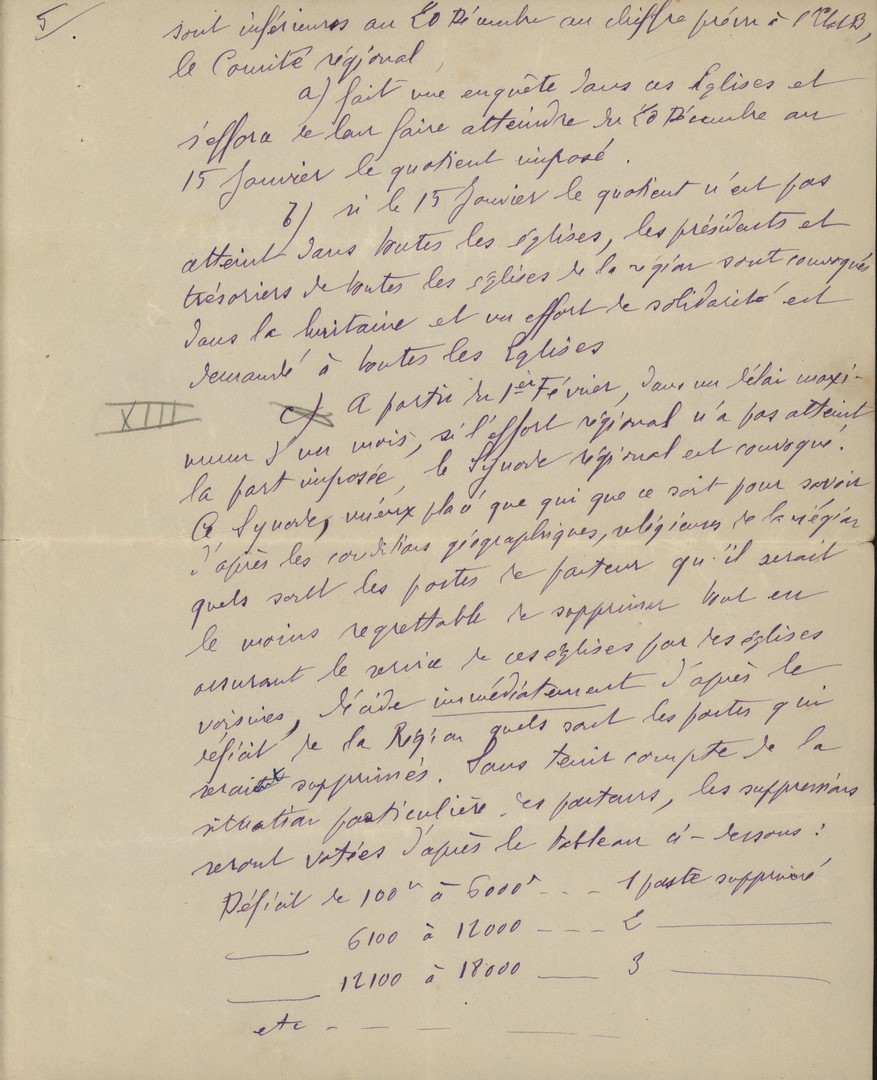 5/
sont inférieures au 20 Décembre au chiffre prévu à l'Art B,
le Comité régional
a) fait une enquête dans ces Eglises et
s'efforce de leur faire atteindre du 20 Décembre au
15 Janvier le quotient imposé.
b) si le 15 Janvier le quotient n'est pas
atteint dans toutes les églises, les présidents et
trésoriers de toutes les églises de la région sont convoqués
dans la huitaine et un effort de solidarité est
demandé à toutes les Eglises
XIII c) A partir du 1er Février, dans un délai maxi-
mum d'un mois, si l'effort régional n'a pas atteint
la part imposée, le Synode régional est convoqué.
Ce Synode, mieux placé que qui que ce soit pour savoir
d'après les conditions géographiques, religieuses de la région
quels sont les postes de pasteur qu'il serait
le moins regrettable de supprimer tout en
assurant le service de ces églises par des églises
voisines, décide immédiatement d'après le
déficit de la Région quels sont les postes qui
seraient supprimés. Sans tenir compte de la
situation particulière des pasteurs, les suppressions
seront votées d'après le tableau ci-dessous :
Déficit de 100 à 6000 - - - 1 poste supprimé
____ 6100 à 12000 - - - 2 ____
____ 12100 à 18000 ____ 3 ____
etc - - - ____